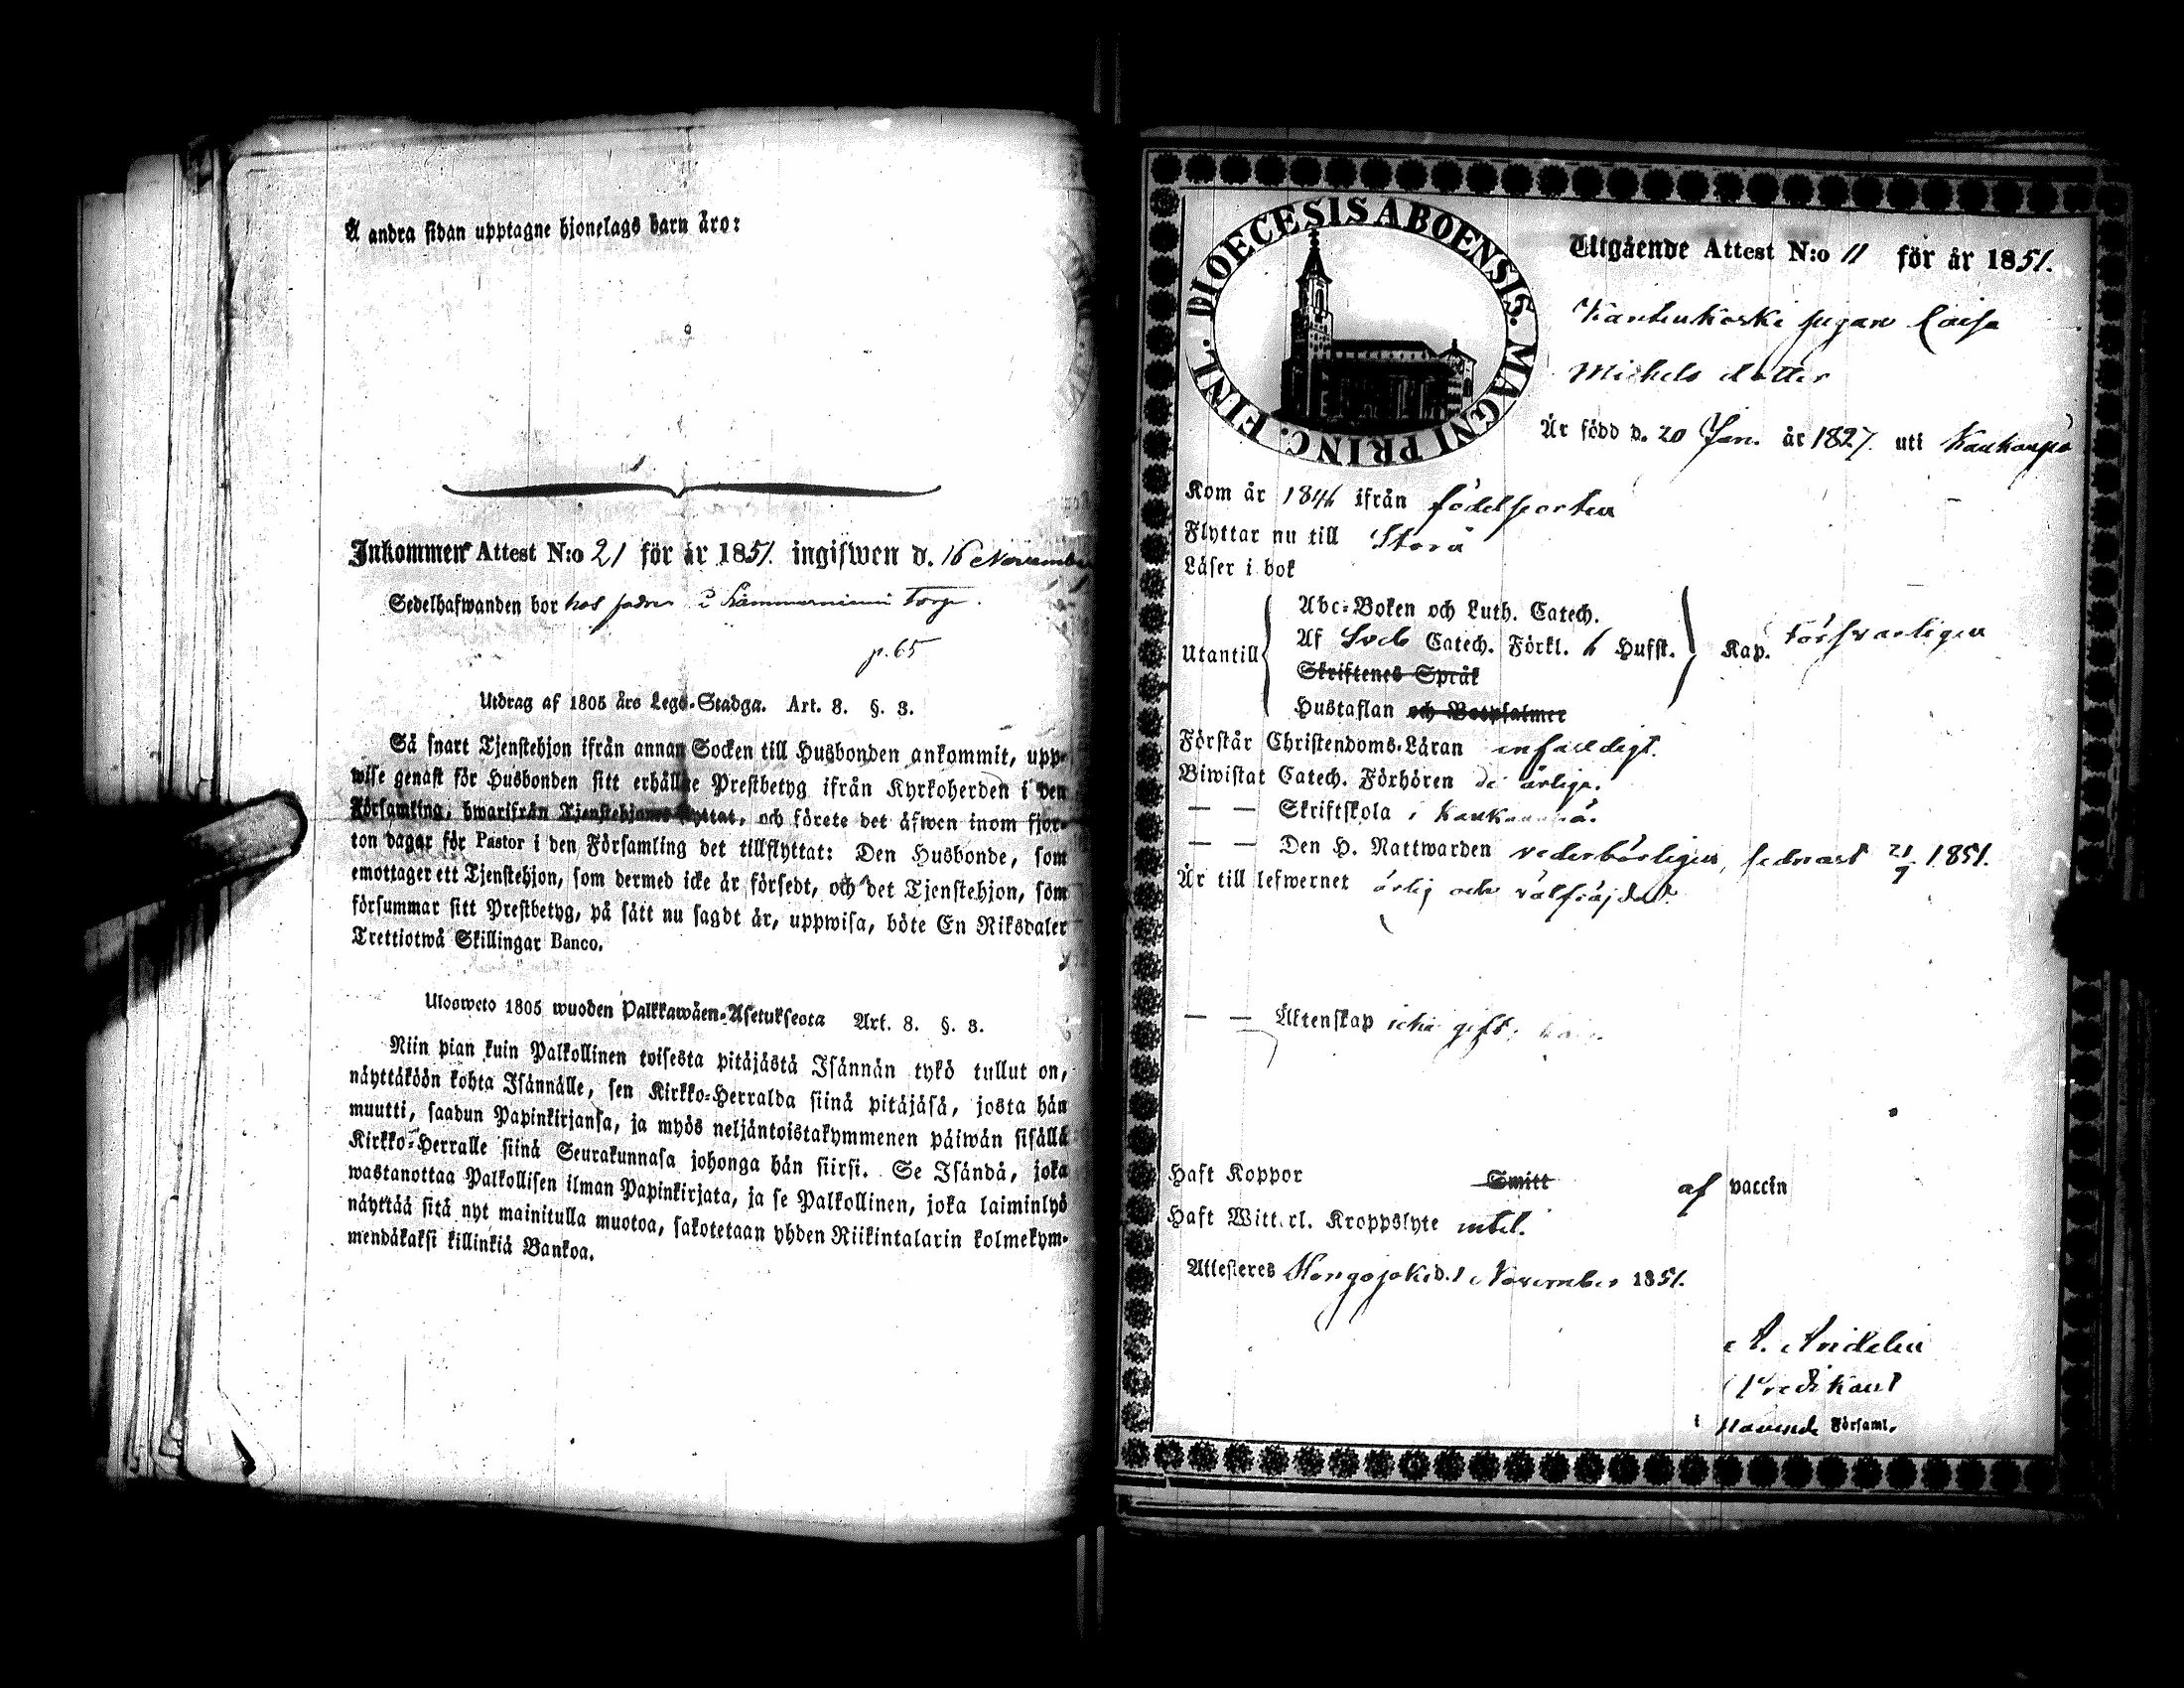 Å andra sidan upptagne hjonelags barn äro:
Inkommen Attest N:o 21 för år 1851. ingifwen d. 16 November
Sedelhafwanden bor hos fadren Torp.
p. 65
Utdrag af 1805 års Lego-Stadga. Art. 8. §. 3.
Så snart Tjenstehjon ifrån annan Socken till Husbonden ankommit, upp-
wise genast för Husbonden sitt erhållne Prestbetyg ifrån Kyrkoherden i den
Församling, hwarifrån Tjenstehjonet flyttat, och förete det äfwen inom fjor-
ton dagar för Pastor i den Församling det tillflyttat: Den Husbonde, som
emottager ett Tjenstehjon, som dermed icke är försedt, och det Tjenstehjon, som
försummar sitt Prestbetyg, på sätt nu sagdt är, uppwisa, böte En Riksdaler
Trettiotwå Skillingar Banco.
Ulosweto 1805 wuoden Palkkawäen-Asetuksesta Art. 8. §. 3.
Niin pian kuin Palkollinen toisesta pitäjästä Isännän tykö tullut on,
näyttäköön kohta Isännälle, sen Kirkko-Herralda siinä pitäjäsä, josta hän
muutti, saadun Papinkirjansa, ja myös neljäntoistakymmenen päiwän sisällä
Kirkko-Herralle siinä Seurakunnasa johonga hän siirsi. Se Isändä, joka
wastanottaa Palkollisen ilman Papinkirjata, ja se Palkollinen, joka laiminlyö
näyttää sitä nyt mainitulla muotoa, sakotetaan yhden Riikintalarin kolmekym-
mendäkaksi killinkiä Bankoa.
DIOECESIS ABOENSIS. MAGNI PRINC. FINL.
Utgående Attest N:o 11 för år 1851.
pigan Caisa
Michels dotter
Är född d. 20 Jan. år 1827. uti Kauhaijo
Kom år 1846 ifrån födelseorten
Flyttar nu till Storå
Läser i bok
Utantill
Abc-Boken och Luth. Catech.
Af Sveb Catech. Förkl. 6 Hufst. Kap. Försvarligen
Skriftenes Språk
Hustaflan och Botpsalmer
Förstår Christendoms-Läran enfaldigt.
Biwistat Catech. Förhören de årliga.
— — Skriftskola i
— — Den H. Nattwarden vederbörligen, sednast 21/9 1851.
Är till lefwernet ärlig och välfräjdad.
— — Äktenskap icke gift.
Haft Koppor Smitt af vaccin
Haft Witterl. Kroppslyte intet.
Attesteres Kongojoki d. 1 November 1851.
Predikant
i Församl.